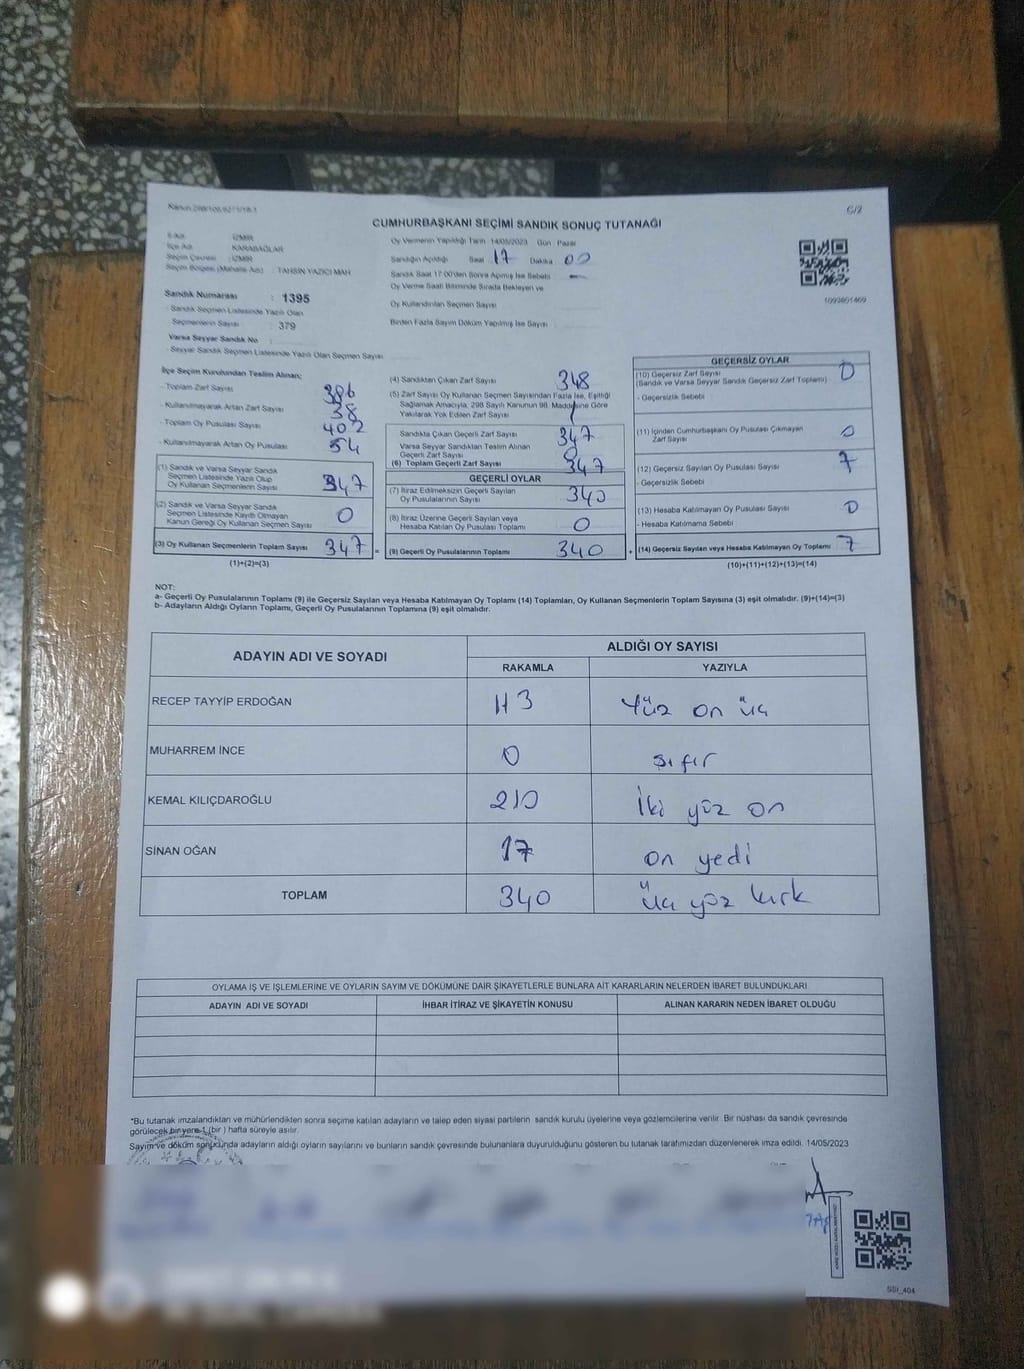 C/2
CUMHURBAŞKANI SEÇİMİ SANDIK SONUÇ TUTANAĞI
İli Adı : İZMİR
İlçe Adı : KARABAĞLAR
Seçim Çevresi : İZMİR
Seçim Bölgesi (Mahalle Adı) : TAHSİN YAZICI MAH
Sandık Numarası : 1395
Sandık Seçmen Listesinde Yazılı Olan
Seçmenlerin Sayısı : 379
Varsa Seyyar Sandık No :
Seyyar Sandık Seçmen Listesinde Yazılı Olan Seçmen Sayısı
Oy Vermenin Yapıldığı Tarih 14/05/2023 Gün Pazar
Sandığın Açıldığı Saat 17 Dakika 00
Sandık Saat 17:00'den Sonra Açılmış İse Sebebi -
Oy Verme Saati Bitiminde Sırada Bekleyen ve
Oy Kullandırılan Seçmen Sayısı
Birden Fazla Sayım Döküm Yapılmış İse Sayısı
1093801469
İlçe Seçim Kurulundan Teslim Alınan;
- Toplam Zarf Sayısı 386
- Kullanılmayarak Artan Zarf Sayısı 38
- Toplam Oy Pusulası Sayısı 402
- Kullanılmayarak Artan Oy Pusulası 54
(1) Sandık ve Varsa Seyyar Sandık
Seçmen Listesinde Yazılı Olup
Oy Kullanan Seçmenlerin Sayısı 347
(2) Sandık ve Varsa Seyyar Sandık
Seçmen Listesinde Kayıtlı Olmayan
Kanun Gereği Oy Kullanan Seçmen Sayısı 0
(3) Oy Kullanan Seçmenlerin Toplam Sayısı 347 =
(1)+(2)=(3)
(4) Sandıktan Çıkan Zarf Sayısı 348
(5) Zarf Sayısı Oy Kullanan Seçmen Sayısından Fazla İse, Eşitliği
Sağlamak Amacıyla, 298 Sayılı Kanunun 98. Maddesine Göre
Yakılarak Yok Edilen Zarf Sayısı 1
Sandıkta Çıkan Geçerli Zarf Sayısı 347
Varsa Seyyar Sandıktan Teslim Alınan
Geçerli Zarf Sayısı 0
(6) Toplam Geçerli Zarf Sayısı 347
GEÇERLİ OYLAR
(7) İtiraz Edilmeksizin Geçerli Sayılan
Oy Pusulalarının Sayısı 340
(8) İtiraz Üzerine Geçerli Sayılan veya
Hesaba Katılan Oy Pusulası Toplamı 0
(9) Geçerli Oy Pusulalarının Toplamı 340 +
GEÇERSİZ OYLAR
(10) Geçersiz Zarf Sayısı 0
(Sandık ve Varsa Seyyar Sandık Geçersiz Zarf Toplamı)
- Geçersizlik Sebebi
(11) İçinden Cumhurbaşkanı Oy Pusulası Çıkmayan
Zarf Sayısı 0
(12) Geçersiz Sayılan Oy Pusulası Sayısı 7
- Geçersizlik Sebebi
(13) Hesaba Katılmayan Oy Pusulası Sayısı 0
- Hesaba Katılmama Sebebi
(14) Geçersiz Sayılan veya Hesaba Katılmayan Oy Toplamı 7
(10)+(11)+(12)+(13)=(14)
NOT:
a- Geçerli Oy Pusulalarının Toplamı (9) ile Geçersiz Sayılan veya Hesaba Katılmayan Oy Toplamı (14) Toplamları, Oy Kullanan Seçmenlerin Toplam Sayısına (3) eşit olmalıdır. (9)+(14)=(3)
b- Adayların Aldığı Oyların Toplamı, Geçerli Oy Pusulalarının Toplamına (9) eşit olmalıdır.
ADAYIN ADI VE SOYADI
ALDIĞI OY SAYISI
RAKAMLA YAZIYLA
RECEP TAYYİP ERDOĞAN 113 Yüz on üç
MUHARREM İNCE 0 sıfır
KEMAL KILIÇDAROĞLU 210 İki yüz on
SİNAN OĞAN 17 on yedi
TOPLAM 340 üç yüz kırk
OYLAMA İŞ VE İŞLEMLERİNE VE OYLARIN SAYIM VE DÖKÜMÜNE DAİR ŞİKAYETLERLE BUNLARA AİT KARARLARIN NELERDEN İBARET BULUNDUKLARI
ADAYIN ADI VE SOYADI İHBAR İTİRAZ VE ŞİKAYETİN KONUSU ALINAN KARARIN NEDEN İBARET OLDUĞU
*Bu tutanak imzalandıktan ve mühürlendikten sonra seçime katılan adayların ve talep eden siyasi partilerin sandık kurulu üyelerine veya gözlemcilerine verilir. Bir nüshası da sandık çevresinde
görülecek bir yere 1 (bir ) hafta süreyle asılır.
Sayım ve döküm sonucunda adayların aldığı oyların sayılarını ve bunların sandık çevresinde bulunanlara duyurulduğunu gösteren bu tutanak tarafımızdan düzenlenerek imza edildi. 14/05/2023
SSI_404